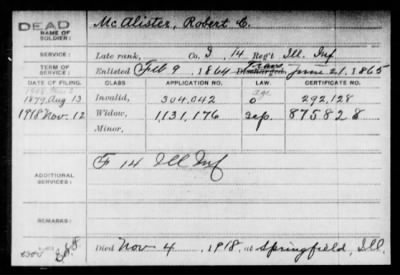 DEAD
NAME OF SOLDIER: McAlister, Robert C.
SERVICE: Late rank, Co. I, 14 Reg't Ill. Inf
TERM OF SERVICE: Enlisted Feb 9, 1864 Discharged Trans June 21, 1865
DATE OF FILING. CLASS. APPLICATION NO. LAW. CERTIFICATE NO.
age
1879 Aug 13 Invalid, 304.042 o 292,128
1918 Nov. 12 Widow, 1131,176 Sep. 875828
Minor,
ADDITIONAL SERVICES: F 14 Ill Inf
REMARKS:
Died Nov 4, 1918, at Springfield, Ill.